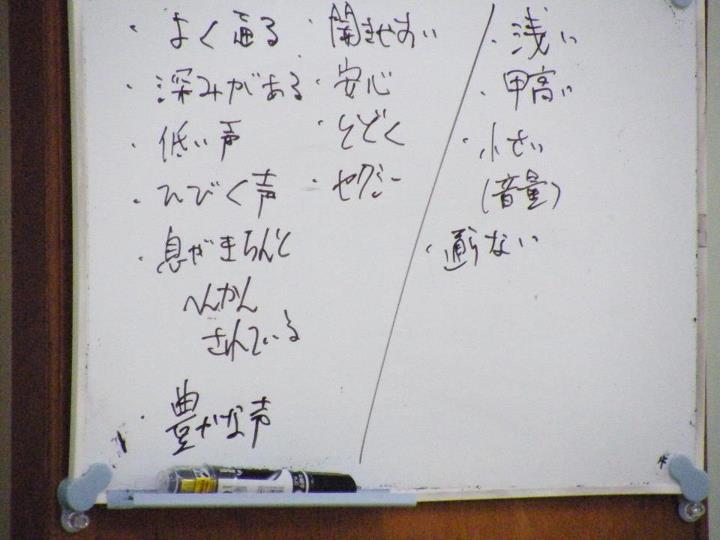 ・よく通る
・深みがある
・低い声
・ひびく声
・息がきちんと
へんかん
されている
・豊かな声
・聞きやすい
・安心
・とどく
・セクシー
・浅い
・甲高い
・小さい
(音量)
・通らない